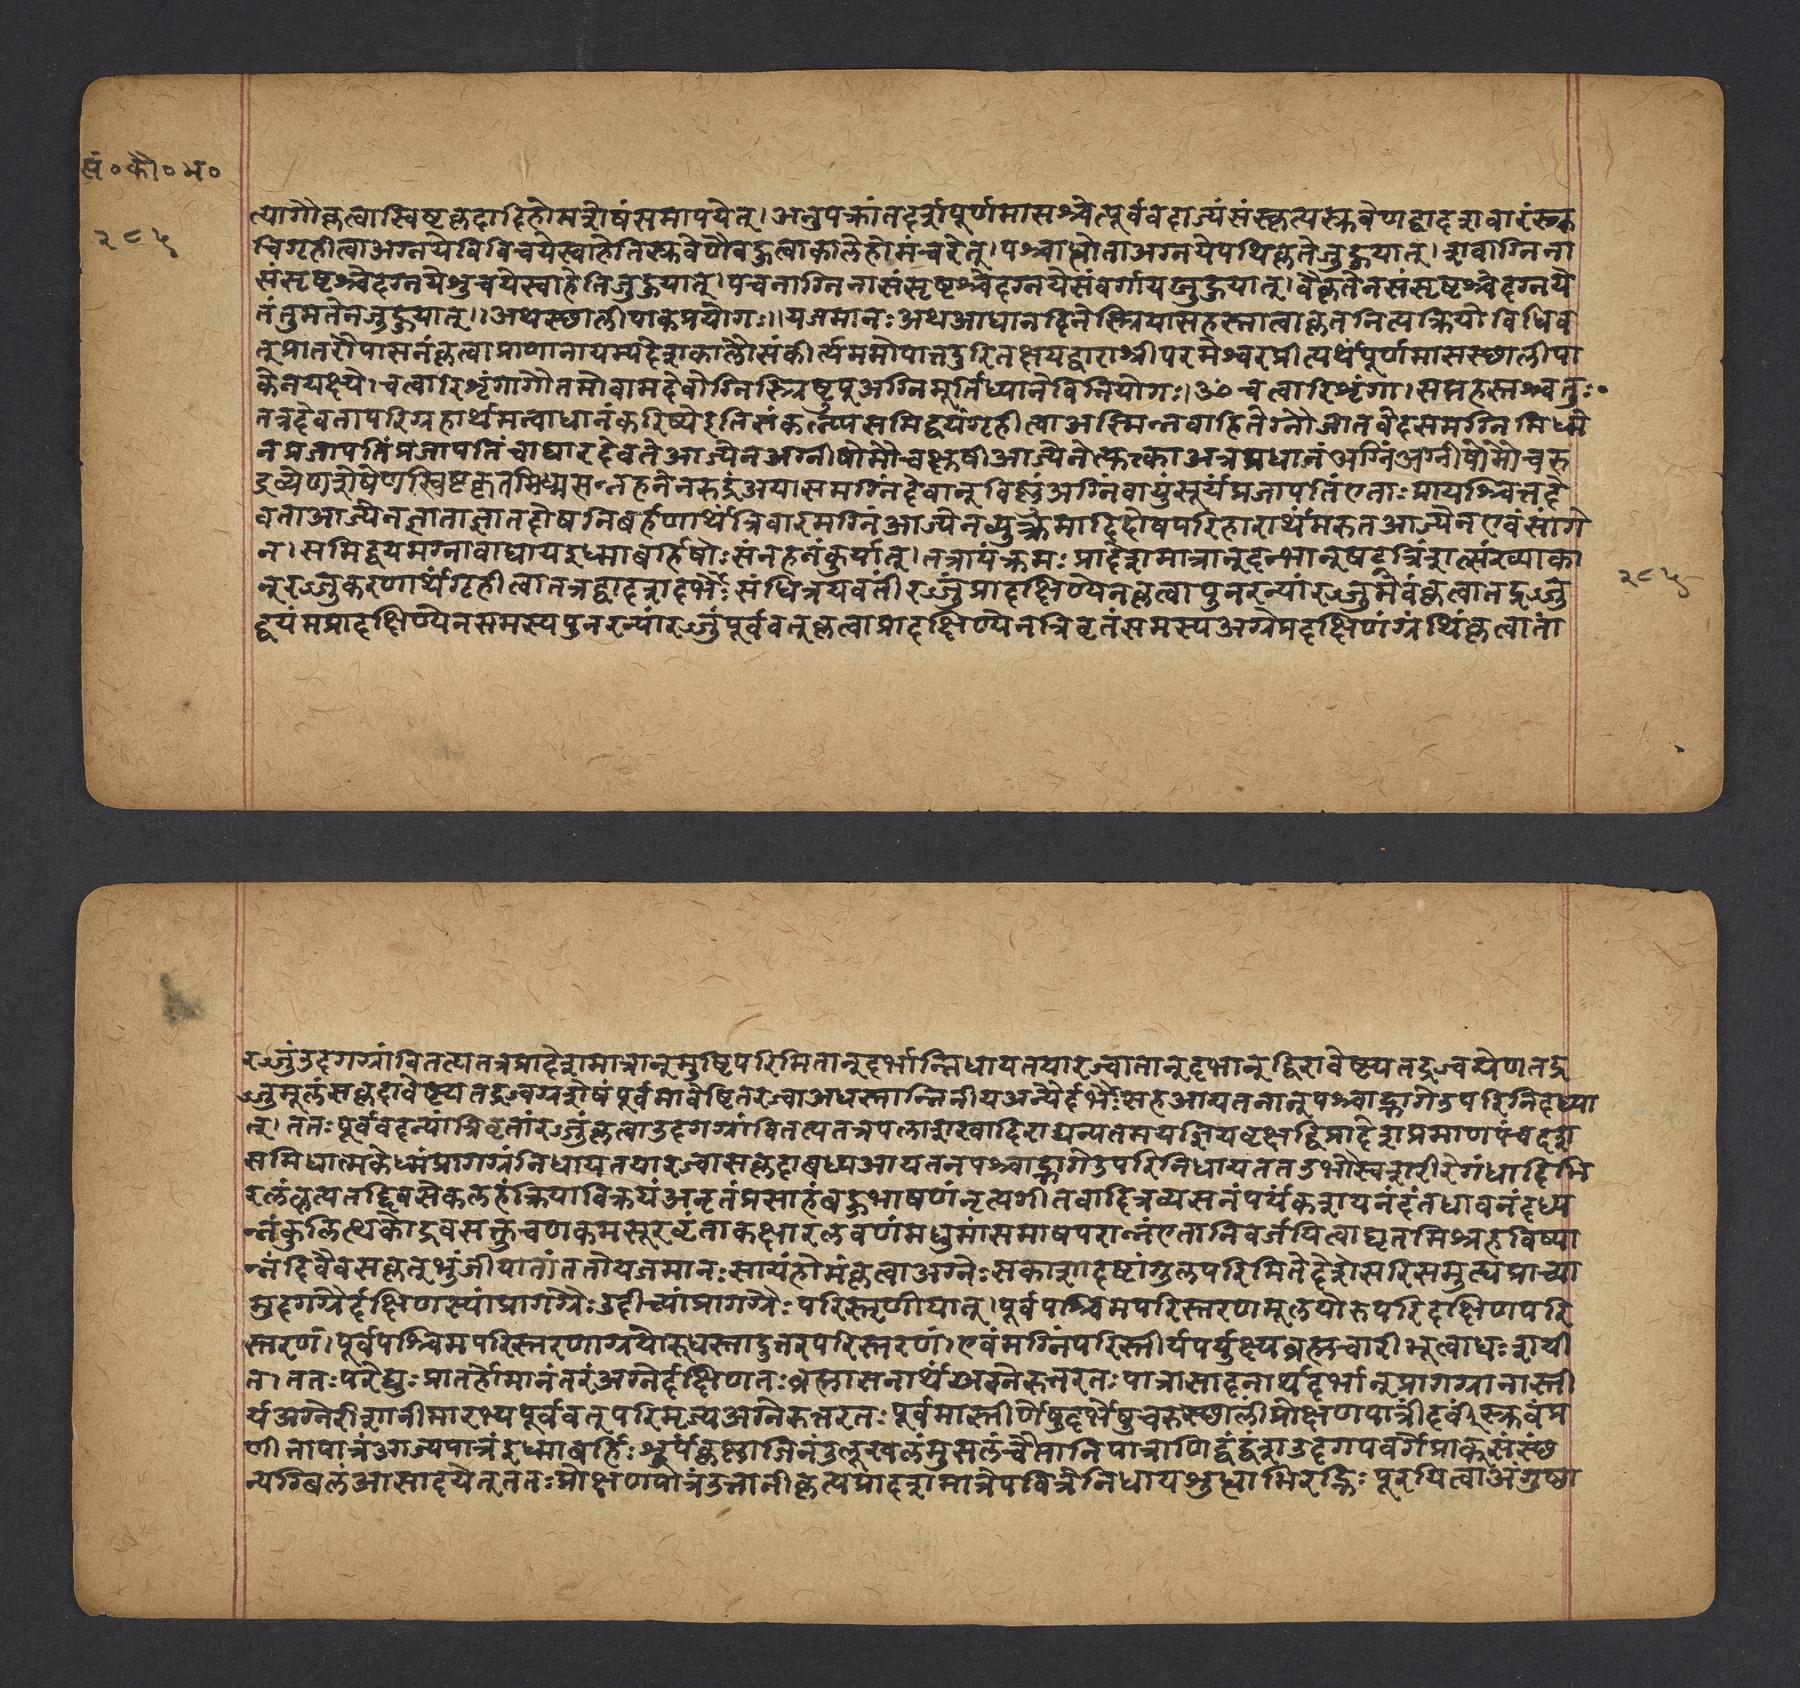 सं०कौ०भ०
२८५
त्यागौकृत्वास्विष्टकृदादिहोमशेषंसमापयेत्।अनुपक्रांतदर्शपूर्णमासश्चेत्पूर्ववदाज्यंसंस्कृत्यस्रुवेणद्वादशवारंस्रुचि
चिगृहीत्वाअग्नयेविविचयेस्वाहेतिस्रुवेणैवहुत्वाकालेहोमंचरेत्।पश्चाद्धोताअग्नयेपथिकृतेजुहुयात्।शवाग्निना
संसृष्टश्चेदग्नयेशुचयेस्वाहेतिजुहुयात्।पचनाग्निनासंसृष्टश्चेदग्नयेसंवर्गायजुहुयात्।वैकृतेनसंसृष्टश्चेदग्नये
तंतुमतेनजुहुयात्।।अथस्थालीपाकप्रयोगः।।यजमानःअथआधानदिनेस्त्रियासहस्नात्वाकृतनित्यक्रियोविधिव
त्प्रातरौपासनंकृत्वाप्राणानायम्यदेशकालौसंकीर्त्यममोपात्तदुरितक्षयद्वाराश्रीपरमेश्वरप्रीत्यर्थंपूर्णमासस्थालीपा
केनयक्ष्ये।चत्वारिशृंगागौतमोवामदेवोग्निस्त्रिष्टुप्अग्निमूर्तिध्यानेविनियोगः।ॐचत्वारिशृंगा।सप्तहस्तश्चतुः०
तत्रदेवतापरिग्रहार्थमन्वाधानंकरिष्येइतिसंकल्प्यसमिद्द्वयंगृहीत्वाअस्मिन्नन्वाहितेग्नौजातवेदसमग्निमिध्मे
नप्रजापतिंप्रजापतिंचाघारदेवतेआज्येनअग्नीषोमौचक्षुषीआज्येनेत्युक्त्काअत्रप्रधानंअग्निंअग्नीषोमौचरु
द्रव्येणशेषेणस्विष्टकृतमिध्मसन्नहनेनरुद्रंअयासमग्निंदेवानुविष्णुंअग्निंवायुंसूर्यंप्रजापतिंएताःप्रायश्चित्तदे
वताआज्येनज्ञाताज्ञातदोषनिबर्हणार्थंत्रिवारमग्निंआज्येनव्युत्क्रमादिदोषपरिहारार्थंमरुतआज्येनएवंसांगे
न।समिद्द्वयमग्नावाधायइध्माबर्हिषोःसंनहनंकुर्यात्।तत्रायंक्रमःप्रादेशमात्रान्दर्भानुषट्त्रिंशत्संख्याका
न्रज्जुकरणार्थंगृहीत्वातत्रद्वादशदर्भैःसंधित्रयवतींरज्जुंप्रादक्षिण्येनकृत्वापुनरन्यांरज्जुमेवंकृत्वातद्रज्जु
द्वयंमप्रादक्षिण्येनसमस्यपुनरन्यांरज्जुंपूर्ववत्कृत्वाप्रादक्षिण्येनत्रिवृतंसमस्यअग्रेप्रदक्षिणंग्रंथिंकृत्वातां
२८५
रज्जुंउदगग्रांवितत्यतत्रप्रादेशमात्रान्मुष्टिपरिमितान्दर्भान्निधायतयारज्वातान्दर्भान्द्विरावेष्ट्यतद्रज्वग्रेणतद्र
ज्जुमूलंसकृदावेष्ट्यतद्रज्वग्रशेषंपूर्वमावेष्टितरज्वाअधस्तान्निनीयअन्यैर्दर्भैःसहआयतनात्पश्चाद्भागेउपरिनिदध्या
त्।ततःपूर्ववदन्यांत्रिवृतांरज्जुंकृत्वाउदगग्रांवितत्यतत्रपलाशखादिराद्यन्यतमयज्ञियवृक्षद्विप्रादेशप्रमाणपंचदश
समिधात्मकेध्मंप्रागग्रंनिधायतयारज्वासकृदाबध्यआयतनपश्चाद्भागेउपरिनिधायततउभौस्वशरीरेगंधादिभि
रलंकृत्यतद्दिवसेकलहंक्रियाविक्रयंअनृतंप्रसाहंबहुभाषणंनृत्यगीतवादित्रव्यसनंपर्यंकशयनंदंतधावनंदध्य
न्नंकुलित्थकोद्रवसक्तुचणकमसूरवृंताकक्षारलवणंमधुमांसमाषपरान्नंएतानिवर्जयित्वाघृतमिश्रहविष्या
न्नंदिवैवसकृत्भुंजीयातांततोयजमानःसायंहोमंकृत्वाअग्नेःसकाशादष्टांगुलपरिमितेदेशेसरिसमुत्यप्राच्या
मुदगग्रैर्दक्षिणस्यांप्रागग्रैःउदीच्यांप्रागग्रैःपरिस्तृणीयात्।पूर्वपश्चिमपरिस्तरणमूलयोरुपरिदक्षिणपरि
स्तरणं।पूर्वपश्चिमपरिस्तरणाग्रयोरधस्तादुत्तरपरिस्तरणं।एवंमग्निंपरिस्तीर्यपर्युक्ष्यब्रह्मचारीभूत्वाधःशयी
त।ततःपरेद्युःप्रातर्होमानंतरंअग्नेर्दक्षिणतःब्रह्मासनार्थंअग्नेरुत्तरतःपात्रासादनार्थंदर्भान्प्रागग्रानास्ती
र्यअग्नेरीशानीमारभ्यपूर्ववत्परिमृज्यअग्नेरुत्तरतःपूर्वमास्तीर्णेषुदर्भेषुचरुस्थालींप्रोक्षणपात्रींदर्वींस्रुवंप्र
णीतापात्रंआज्यपात्रंइध्माबर्हिःशूर्पंकृष्णाजिनंउलूखलंमुसलंचैतानिपात्राणिद्वंद्वंद्वंशउदगपवर्गंप्राक्संस्थं
न्यग्बिलंआसादयेत्ततःप्रोक्षणपात्रंउत्तानीकृत्यप्रादशमात्रेपवित्रेनिधायशुध्दाभिरद्भिःपूरयित्वाअंगुष्ठा